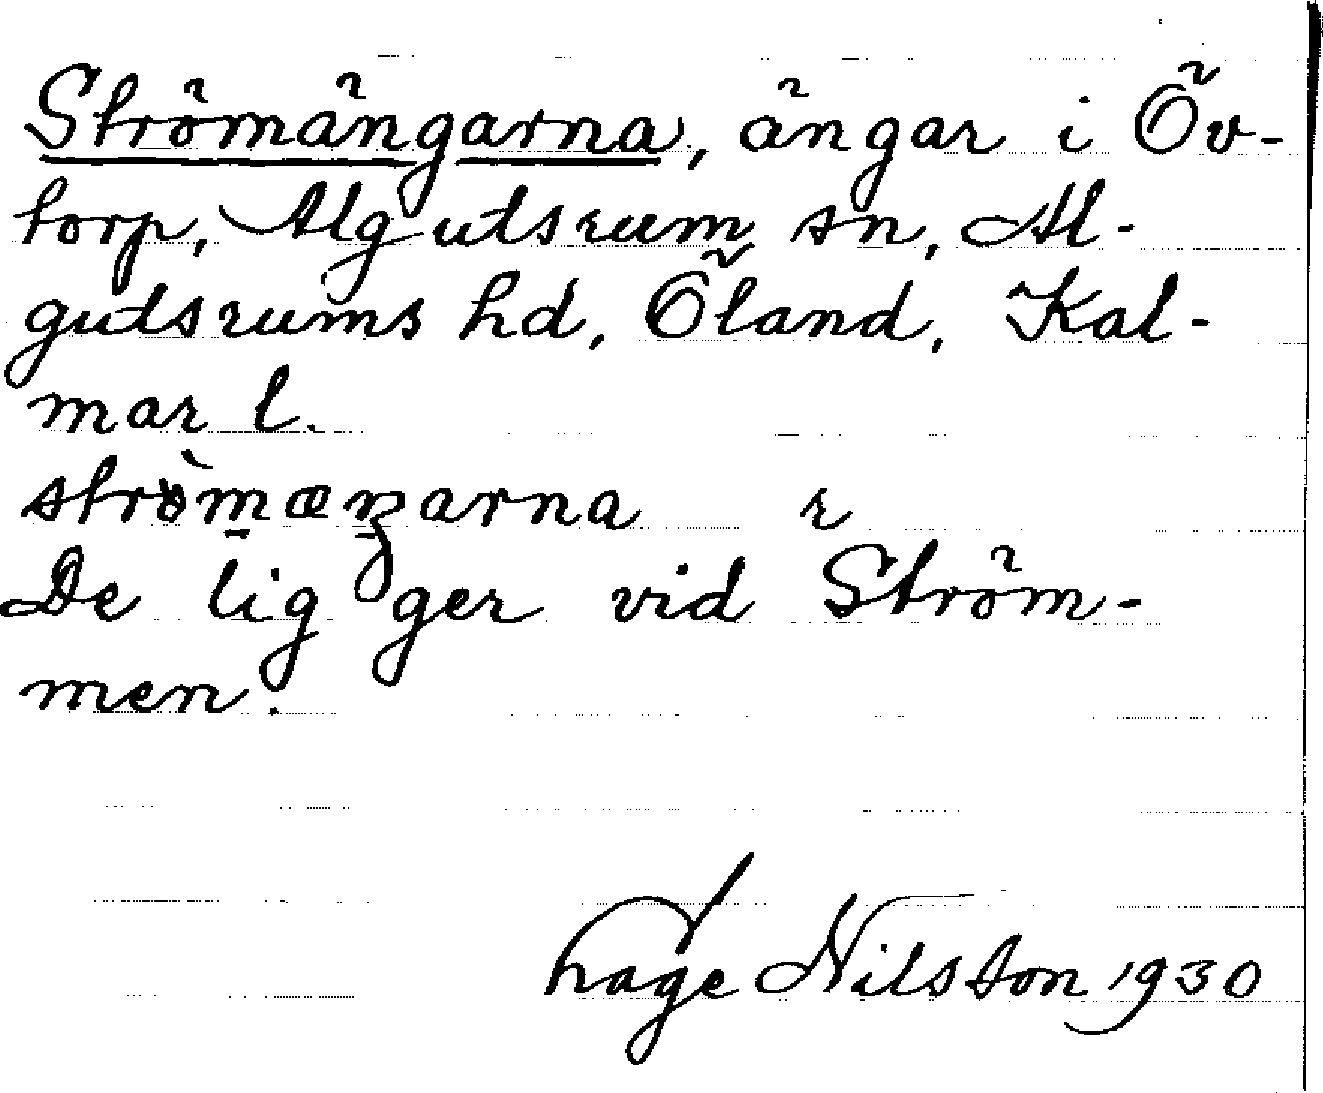 Strömängarna, ängar i Öv-
torp, Algutsrum sn, Al-
gutsrums hd, Öland, Kal-
mar l.
strömæŋarna r
De ligger vid Ström-
men.
Hage Nilsson 1930